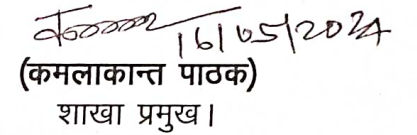 16/05/2024
(कमलाकान्त पाठक)
शाखा प्रमुख।